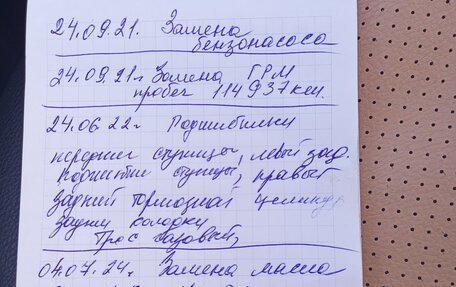 24.09.21. Замена
бензонасоса
24.09.21г Замена ГРМ
пробег 114937км.
24.06 22г Подшибники
передние ступицы, левый зад.
Подшибник ступицы, правый
задний тормозной цилиндр
задни колодки
Трос газовый,
04.07.24. Замена масла